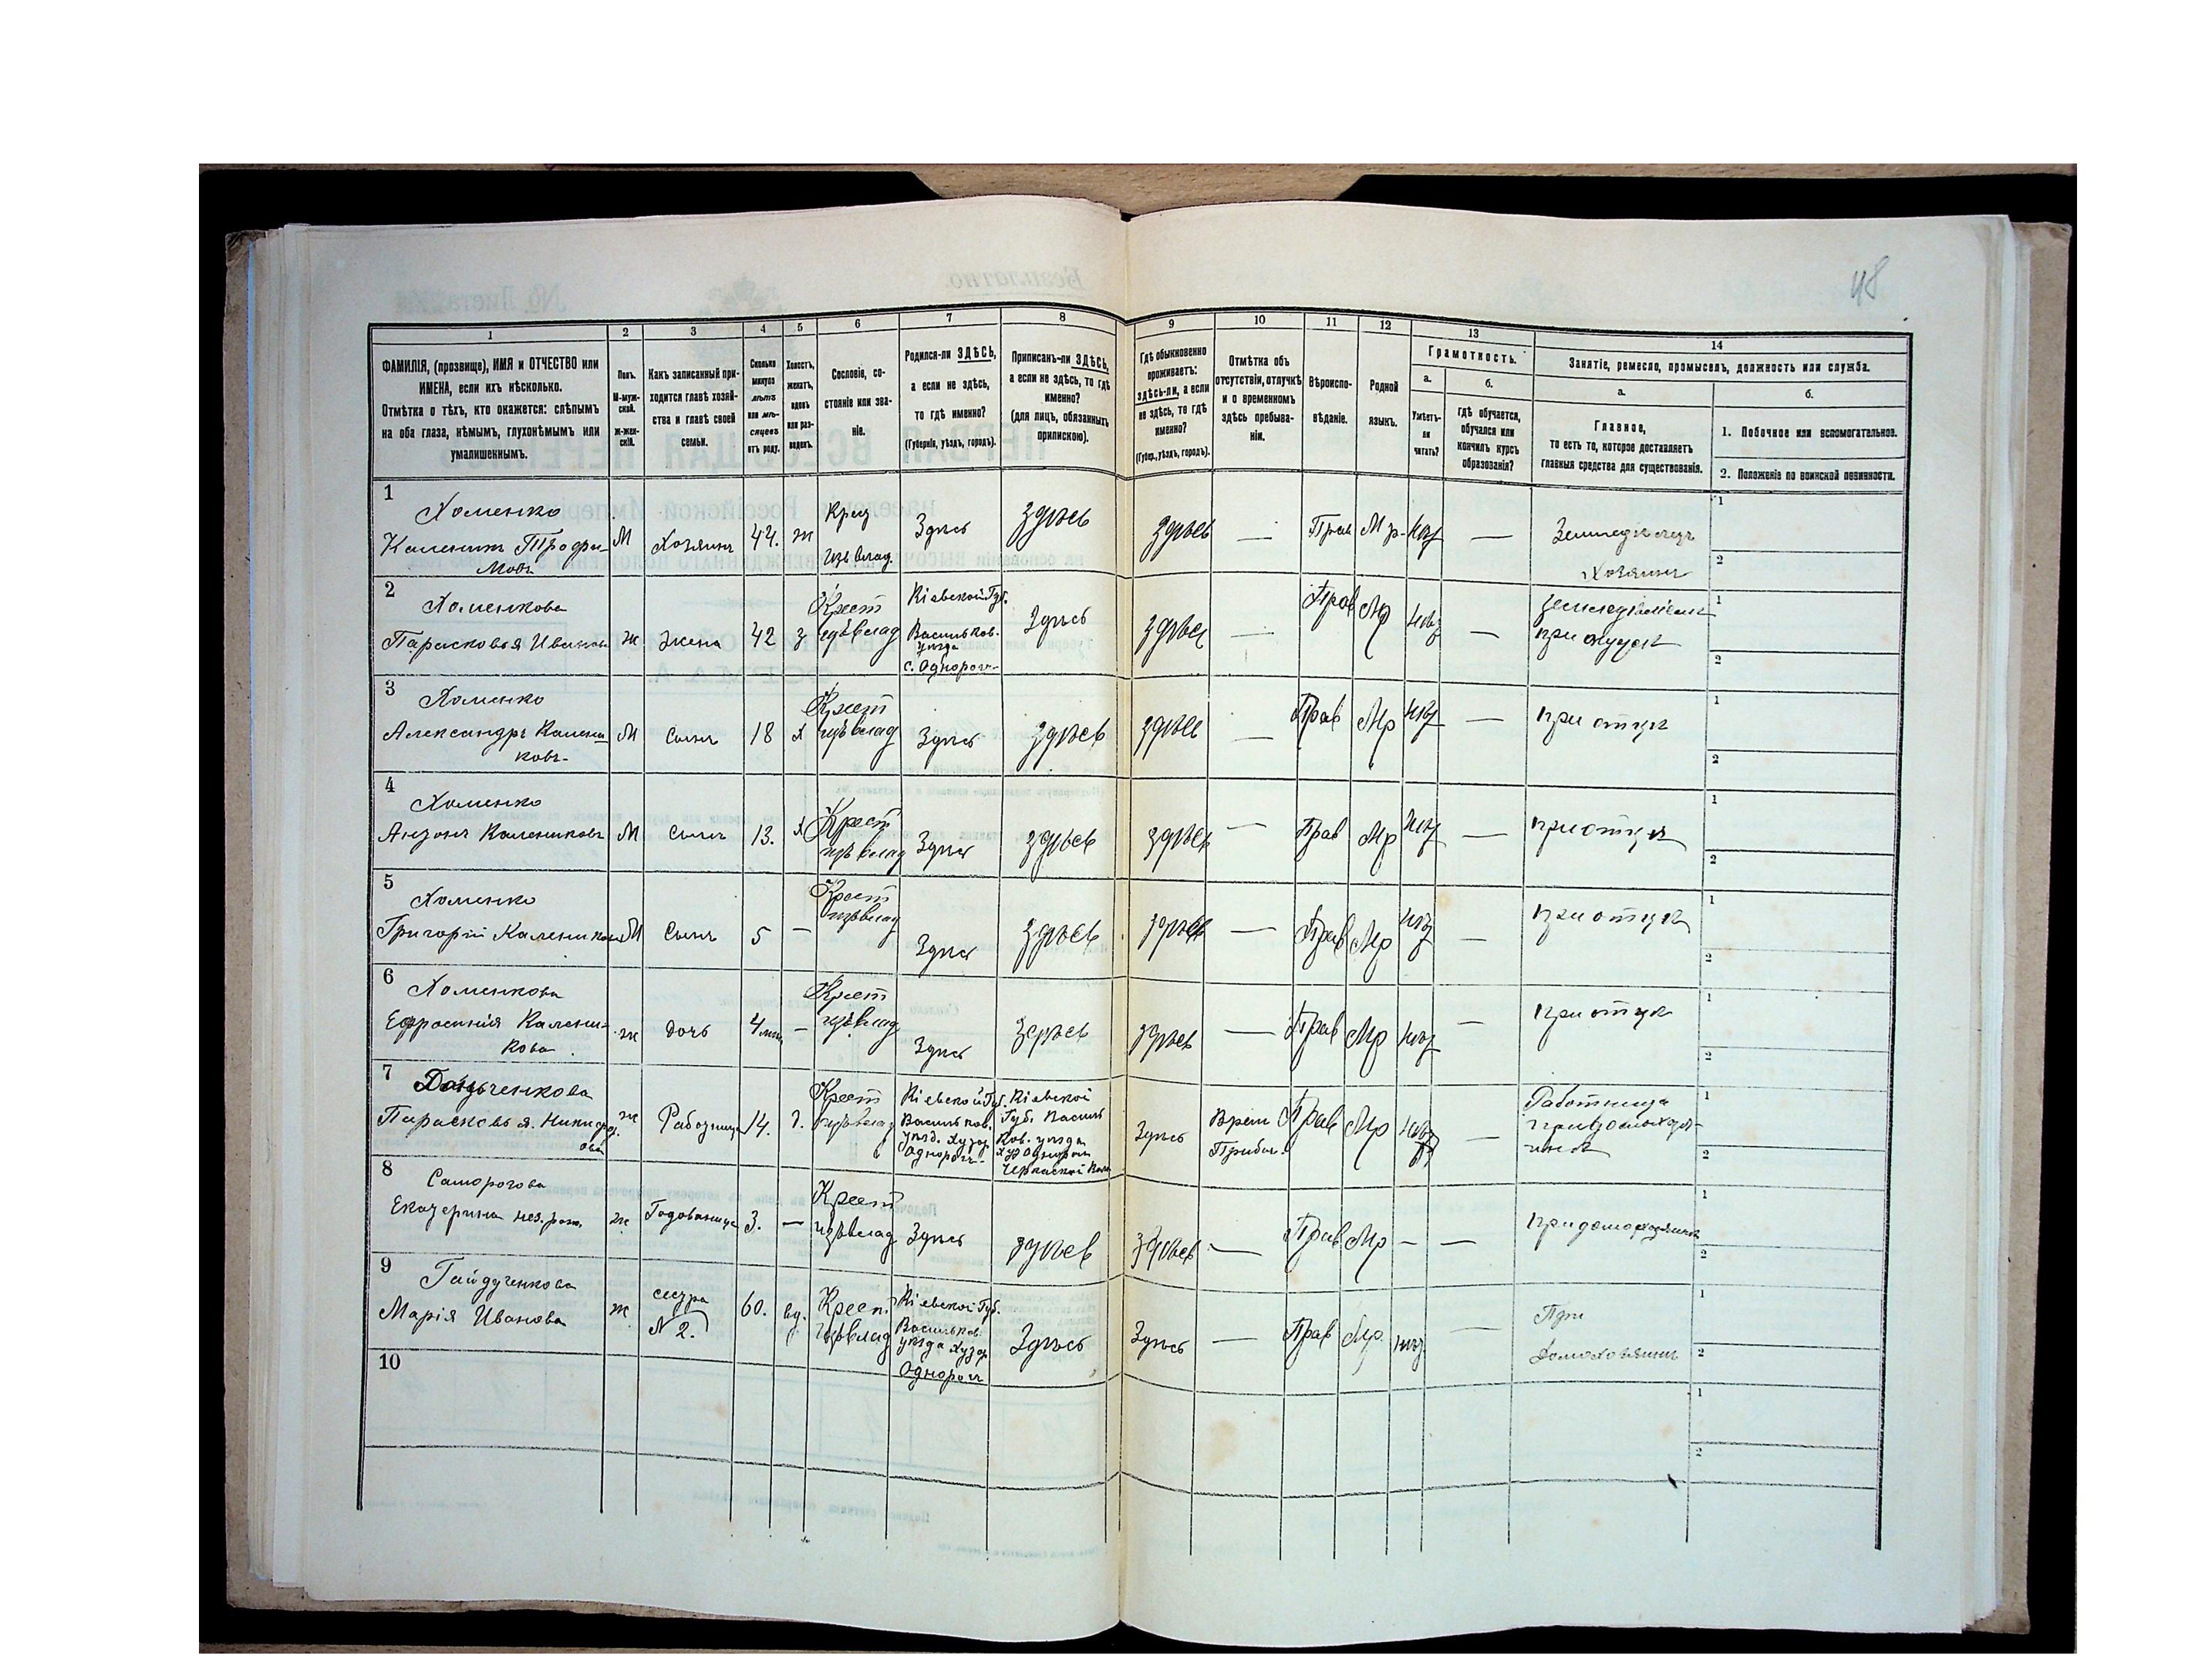 48
1
2
3
4
5
6
7
8
9
10
11
12
13
14
ФАМИЛІЯ, (прозвище), ИМЯ и ОТЧЕСТВО или
ИМЕНА, если ихъ нѣсколько.
Отмѣтка о тѣхъ, кто окажется: слѣпымъ
на оба глаза, нѣмымъ, глухонѣмымъ или
умалишеннымъ.
Полъ.
М-муж-
ской.
Ж-жен-
скій.
Какъ записанный при-
ходится главѣ хозяй-
ства и главѣ своей
семьи.
Сколько
минуло
лѣтъ
или мѣ-
сяцевъ
отъ роду.
Холостъ,
женатъ,
вдовъ
или раз-
веденъ.
Сословіе, со-
стояніе или зва-
ніе.
Родился-ли ЗДѢСЬ,
а если не здѣсь,
то гдѣ именно?
(Губернія, уѣздъ, городъ).
Приписанъ-ли ЗДѢСЬ,
а если не здѣсь, то гдѣ
именно?
(для лицъ, обязанныхъ
припискою).
Гдѣ обыкновенно
проживаетъ:
здѣсь-ли, а если
не здѣсь, то гдѣ
именно?
(Губер., уѣздъ, городъ).
Отмѣтка объ
отсутствіи, отлучкѣ
и о временномъ
здѣсь пребыва-
ніи.
Вѣроиспо-
вѣданіе.
Родной
языкъ.
Грамотность.
а.
Умѣетъ-
ли
читать?
б.
гдѣ обучается,
обучался или
кончилъ курсъ
образованія?
Занятіе, ремесло, промыселъ, должность или служба.
а.
Главное,
то есть то, которое доставляетъ
главныя средства для существованія.
б.
1. Побочное или вспомогательное.
2. Положеніе по воинской повинности.
1
Хоменко
Каленикъ Трофи-
мовъ
М
Хозяинъ
44.
ж
Крест
изъ влад.
Здѣсь
здѣсь
здѣсь
—
Прав
Мр.
—
Земледѣлецъ
Хозяинъ
1
2
2
Хоменкова
Парасковья Иванова
ж
жена
42
з
Крест
изъ влад
Кіевской Губ.
Васильков.
уѣзда
Здѣсь
здѣсь
—
Прав
Мр
—
1
2
3
Хоменко
Александръ Калени
ковъ
М
Сынъ
18
х
Крест
изъ влад
Здѣсь
здѣсь
здѣсь
—
Прав
Мр
—
при отцѣ
1
2
4
Хоменко
Антонъ Калениковъ
М
Сынъ
13.
х
Крест
изъ влад
Здѣсь
здѣсь
здѣсь
—
Прав
Мр
—
при отцѣ
1
2
5
Хоменко
Григорій Калениковъ
М
Сынъ
5
—
Крест
изъ влад
Здѣсь
здѣсь
здѣсь
—
Прав
Мр
—
при отцѣ
1
2
6
Хоменкова
Ефросинія Калени-
кова
ж
дочь
4
—
Крест
изъ влад
Здѣсь
здѣсь
здѣсь
—
Прав
Мр
—
при отцѣ
1
2
7
Парасковья
ж
Работница
14.
Крест
изъ влад
Кіевской Губ.
Васильков.
уѣзд. Хутор
Кіевской
Губ. Василь
ков. уѣзда
Здѣсь
Врем
Прибы.
Прав
Мр
—
Работница
1
2
8
Саморогова
Екатерина
ж
Годованица
3.
—
Крест
изъ влад
Здѣсь
здѣсь
здѣсь
—
Прав
Мр
—
—
при домохозяинѣ
1
2
9
Гайдученкова
Марія Иванова
ж
сестра
N 2.
60.
вд.
Крест
изъ влад
Кіевской Губ.
Васильков.
уѣзда Хутор
Здѣсь
Здѣсь
—
Прав
Мр
—
При
домохозяинѣ
1
2
10
1
2